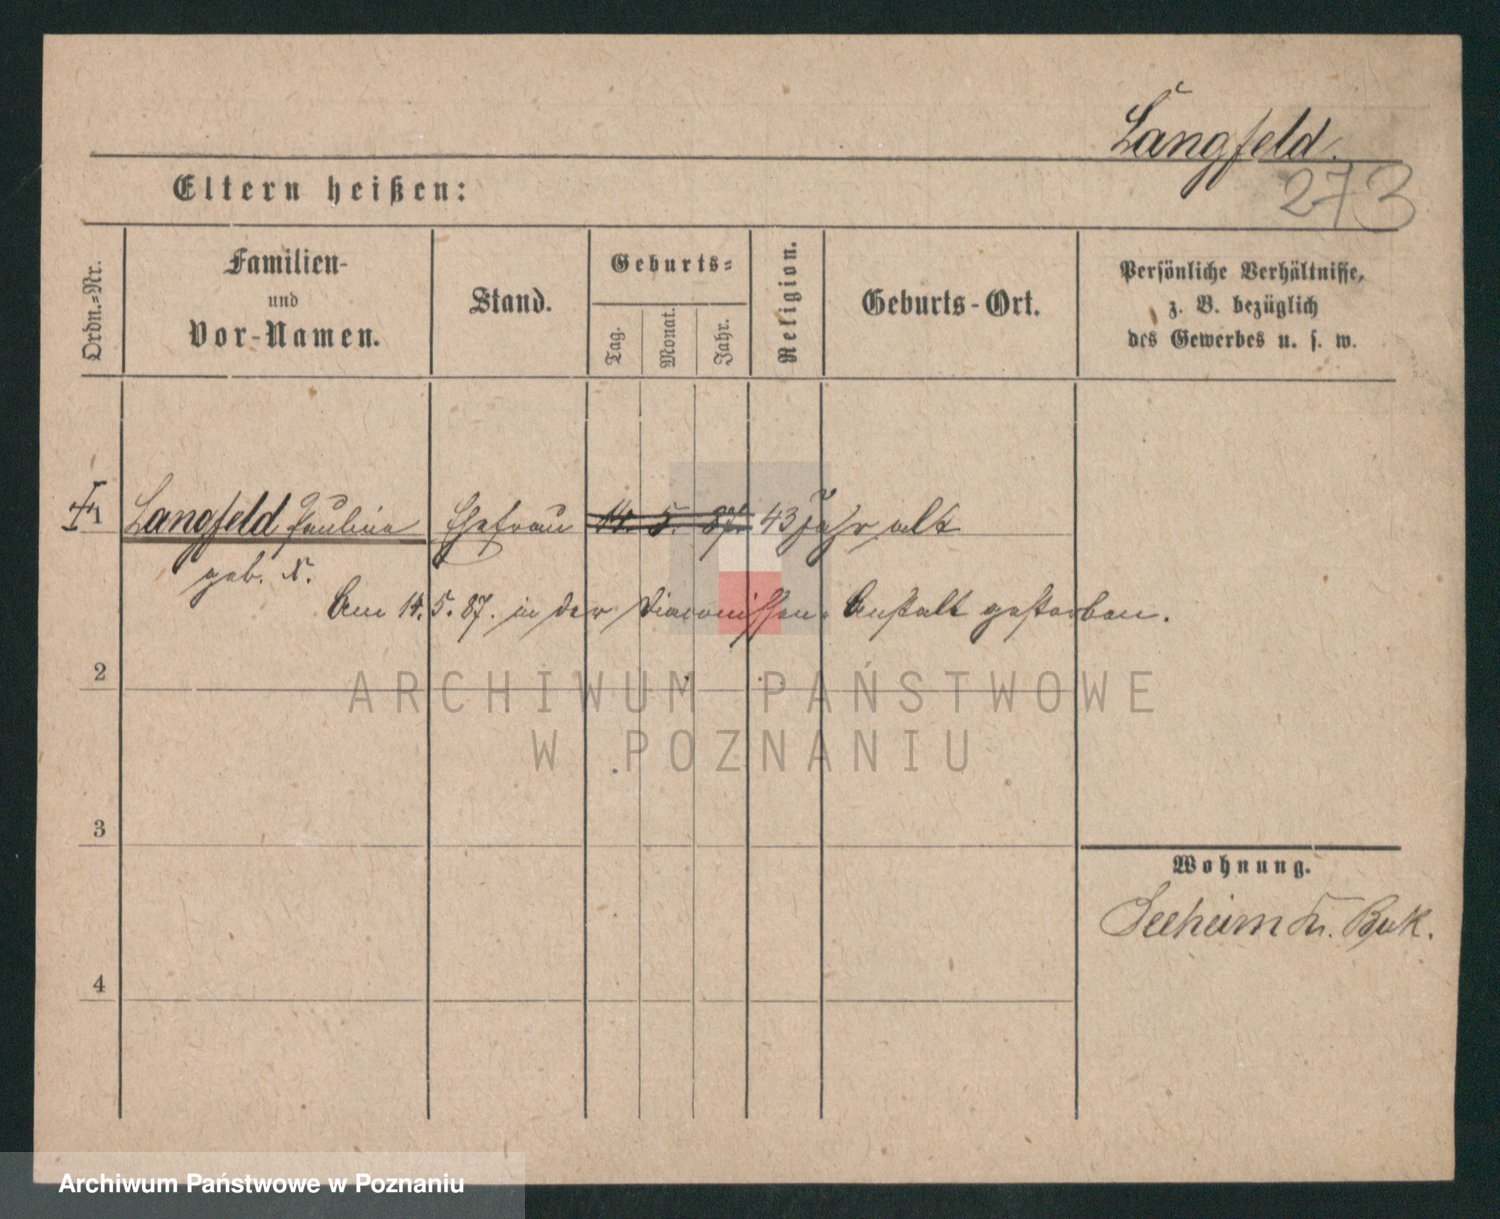 Langfeld.
273
Eltern heißen:
Ordn.-Nr.
Familien-
und
Vor-Namen.
Stand.
Geburts-
Tag.
Monat.
Jahr.
Religion.
Geburts-Ort.
Persönliche Verhältnisse,
z. B. bezüglich
des Gewerbes u. s. w.
1 Langfeld Pauline Ehefrau 14. 5. 87. 43 Jahr alt
geb. N.
Am 14. 5. 87. in der Diaconissen-Anstalt gestorben.
2
ARCHIWUM PAŃSTWOWE
W POZNANIU
3
Wohnung.
Seeheim Kr. Buk.
4
Archiwum Państwowe w Poznaniu